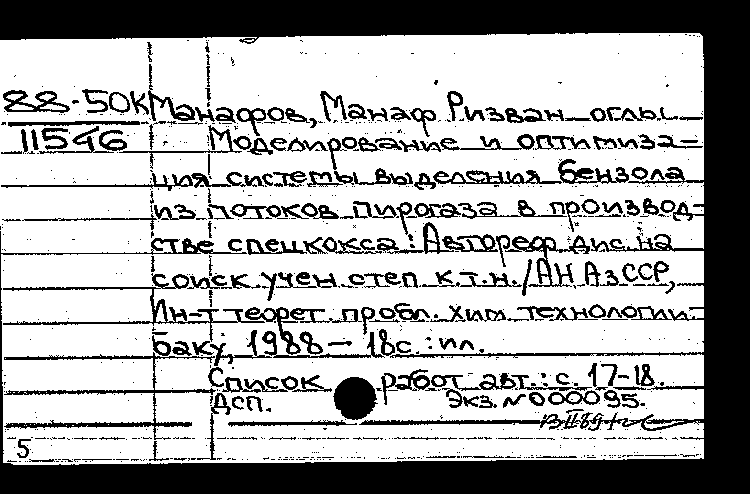 88-50К Манафов, Манаф Ризван оглы.
11546 Моделирование и оптимиза-
ция системы выделения бензола
из потоков пирогаза в производ-
стве спецкокса: Автореф. дис. на
соиск. учен. степ. к.т.н. /АН АзССР,
Ин-т теорет. пробл. хим. технологии.-
Баку, 1988 - 18с. : ил.
Список работ авт.: с. 17-18.
ДСП. Экз. N 000095.
5